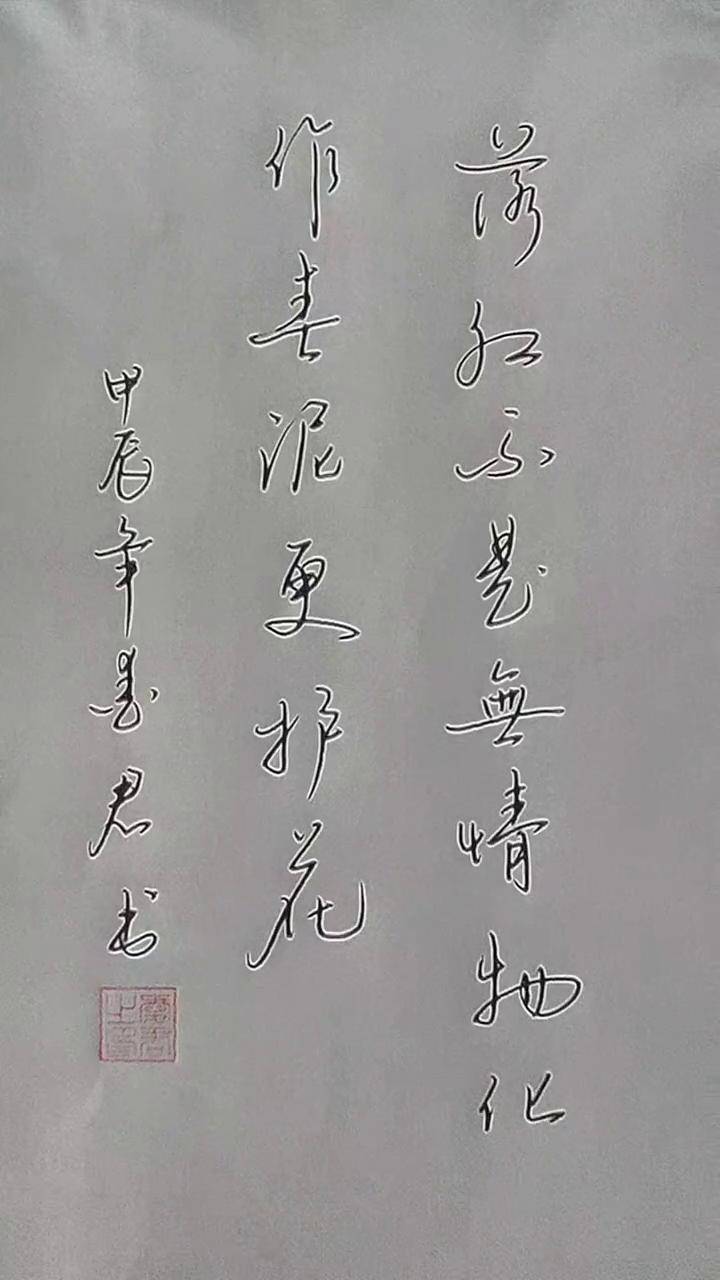 落红不是無情物化
作春泥更护花
甲辰年君书